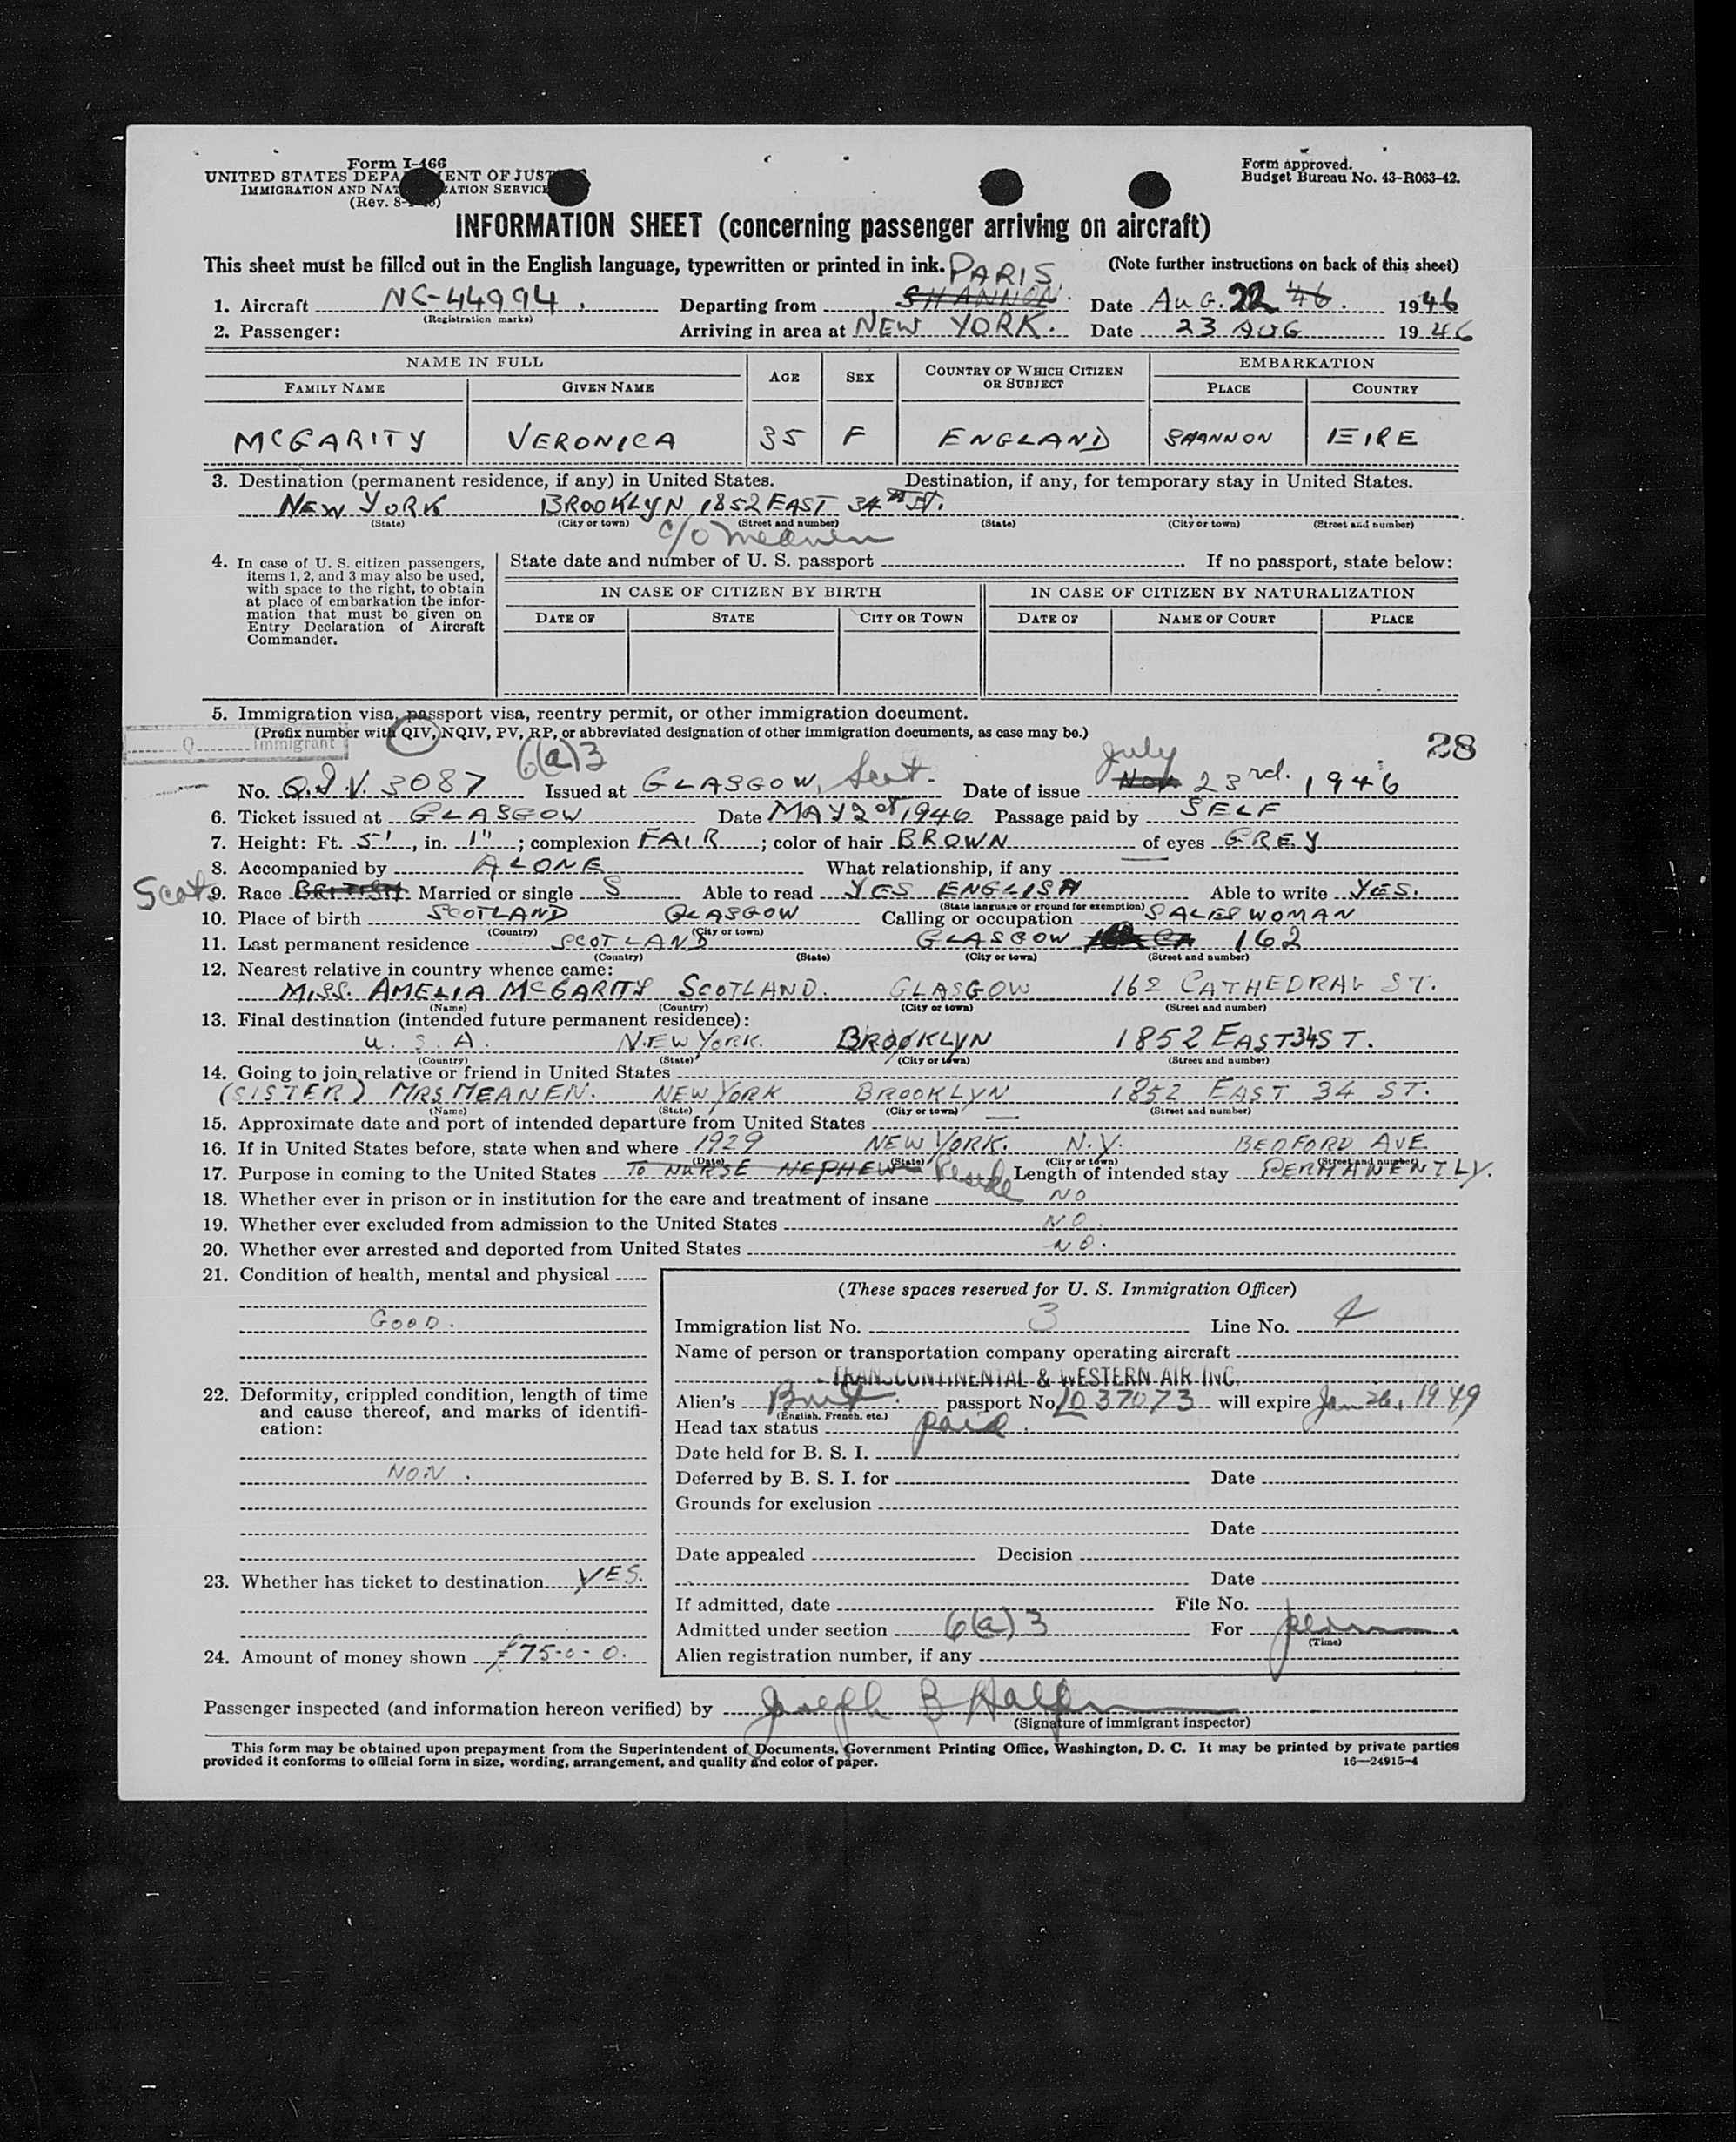 Form I-466
UNITED STATES DEPA ENT OF JUST
IMMIGRATION AND NAT ZATION SERVICE
(Rev. 8-
Form approved.
Budget Bureau No. 43-R063-42.
INFORMATION SHEET (concerning passenger arriving on aircraft)
This sheet must be filled out in the English language, typewritten or printed in ink. (Note further instructions on back of this sheet)
PARIS
1. Aircraft NC-44994. Departing from SHANNON. Date AUG. 22 '46. 1946
(Registration marks)
2. Passenger: Arriving in area at NEW YORK. Date 23 AUG 1946
NAME IN FULL AGE SEX COUNTRY OF WHICH CITIZEN OR SUBJECT EMBARKATION
FAMILY NAME GIVEN NAME PLACE COUNTRY
MCGARITY VERONICA 35 F ENGLAND SHANNON EIRE
3. Destination (permanent residence, if any) in United States. Destination, if any, for temporary stay in United States.
NEW YORK BROOKLYN 1852 EAST 34TH ST.
(State) (City or town) (Street and number) (State) (City or town) (Street and number)
c/o Meanen
4. In case of U. S. citizen passengers, items 1, 2, and 3 may also be used, with space to the right, to obtain at place of embarkation the information that must be given on Entry Declaration of Aircraft Commander.
State date and number of U. S. passport . If no passport, state below:
IN CASE OF CITIZEN BY BIRTH IN CASE OF CITIZEN BY NATURALIZATION
DATE OF STATE CITY OR TOWN DATE OF NAME OF COURT PLACE
5. Immigration visa, passport visa, reentry permit, or other immigration document.
(Prefix number with QIV, NQIV, PV, RP, or abbreviated designation of other immigration documents, as case may be.)
Q Immigrant
6(a)3
July
28
No. Q.I.V. 3087 Issued at GLASGOW, Scot. Date of issue Nov 23rd. 1946
6. Ticket issued at GLASGOW Date MAY 2 1946 Passage paid by SELF
7. Height: Ft. 5', in. 1"; complexion FAIR; color of hair BROWN of eyes GREY
8. Accompanied by ALONE What relationship, if any
Scot 9. Race BRITISH Married or single S Able to read YES ENGLISH Able to write YES.
(State language or ground for exemption)
10. Place of birth SCOTLAND GLASGOW Calling or occupation SALESWOMAN
(Country) (City or town)
11. Last permanent residence SCOTLAND GLASGOW 162
(Country) (State) (City or town) (Street and number)
12. Nearest relative in country whence came:
MISS. AMELIA MCGARITY SCOTLAND. GLASGOW 162 CATHEDRAL ST.
(Name) (Country) (City or town) (Street and number)
13. Final destination (intended future permanent residence):
U. S. A. NEW YORK. BROOKLYN 1852 EAST 34 ST.
(Country) (State) (City or town) (Street and number)
14. Going to join relative or friend in United States
(SISTER) MRS MEANEN. NEW YORK BROOKLYN 1852 EAST 34 ST.
(Name) (State) (City or town) (Street and number)
15. Approximate date and port of intended departure from United States —
16. If in United States before, state when and where 1929 NEW YORK. N.Y. BEDFORD AVE
(Date) (State) (City or town) (Street and number)
17. Purpose in coming to the United States TO NURSE NEPHEW Reside Length of intended stay PERMANENTLY.
18. Whether ever in prison or in institution for the care and treatment of insane NO
19. Whether ever excluded from admission to the United States NO.
20. Whether ever arrested and deported from United States NO.
21. Condition of health, mental and physical
GOOD.
22. Deformity, crippled condition, length of time and cause thereof, and marks of identification:
NON.
23. Whether has ticket to destination YES.
24. Amount of money shown £75-0-0.
(These spaces reserved for U. S. Immigration Officer)
Immigration list No. 3 Line No. 4
Name of person or transportation company operating aircraft
TRANSCONTINENTAL & WESTERN AIR INC.
Alien's Brit. passport No. L037073 will expire Jan 26, 1949
(English, French, etc.)
Head tax status paid.
Date held for B. S. I.
Deferred by B. S. I. for Date
Grounds for exclusion
Date
Date appealed Decision
Date
If admitted, date File No.
Admitted under section 6(a)3 For
(Time)
Alien registration number, if any
Passenger inspected (and information hereon verified) by Joseph B Halpern
(Signature of immigrant inspector)
This form may be obtained upon prepayment from the Superintendent of Documents, Government Printing Office, Washington, D. C. It may be printed by private parties
provided it conforms to official form in size, wording, arrangement, and quality and color of paper. 16—24915-4